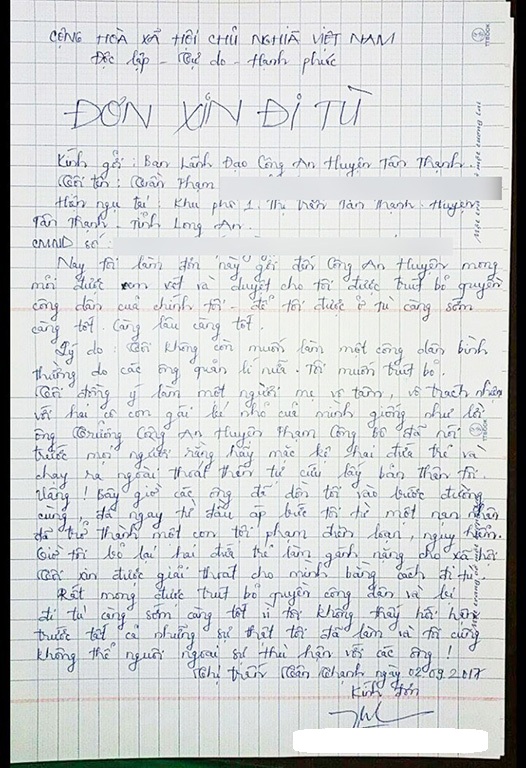 CỘNG HOÀ XÃ HỘI CHỦ NGHĨA VIỆT NAM
Độc lập - Tự do - Hạnh phúc
ĐƠN XIN ĐI TÙ
Kính gởi : Ban Lãnh Đạo Công An Huyện Tân Thạnh.
Tôi tên : Trần Phạm
Hiện ngụ tại : Khu phố 1. Thị trấn Tân Thạnh. Huyện
Tân Thạnh. Tỉnh Long An.
CMND số :
Nay tôi làm đơn này gởi đến Công An Huyện mong
mỏi được xem xét và duyệt cho tôi được truất bỏ quyền
công dân của chính tôi - để tôi được ở tù càng sớm
càng tốt. Càng lâu càng tốt.
Lý do : Tôi không còn muốn làm một công dân bình
thường do các ông quản lí nữa. Tôi muốn truất bỏ.
Tôi đồng ý làm một người mẹ vô tâm, vô trách nhiệm
với hai cô con gái bé nhỏ của mình giống như lời
ông Trưởng Công An Huyện Phạm Công Bô đã nói
trước mọi người rằng hãy mặc kệ hai đứa trẻ và
chạy ra ngoài thoát thân tự cứu lấy bản thân tôi.
Vâng ! Bây giờ các ông đã dồn tôi vào bước đường
cùng, đã ngay từ đầu áp bức tôi từ một nạn nhân
đã trở thành một con tội phạm điên loạn, nguy hiểm.
Giờ tôi bỏ lại hai đứa trẻ làm gánh nặng cho xã hội
Tôi xin được giải thoát cho mình bằng cách đi tù.
Rất mong được truất bỏ quyền công dân và
đi tù càng sớm càng tốt vì tôi không thấy hối hận
trước tất cả những sự thật tôi đã làm và tôi cũng
không thể nguôi ngoai sự thù hận với các ông !
Thị trấn Tân Thạnh ngày 02.09.2017
Kính đơn
TTBOOK